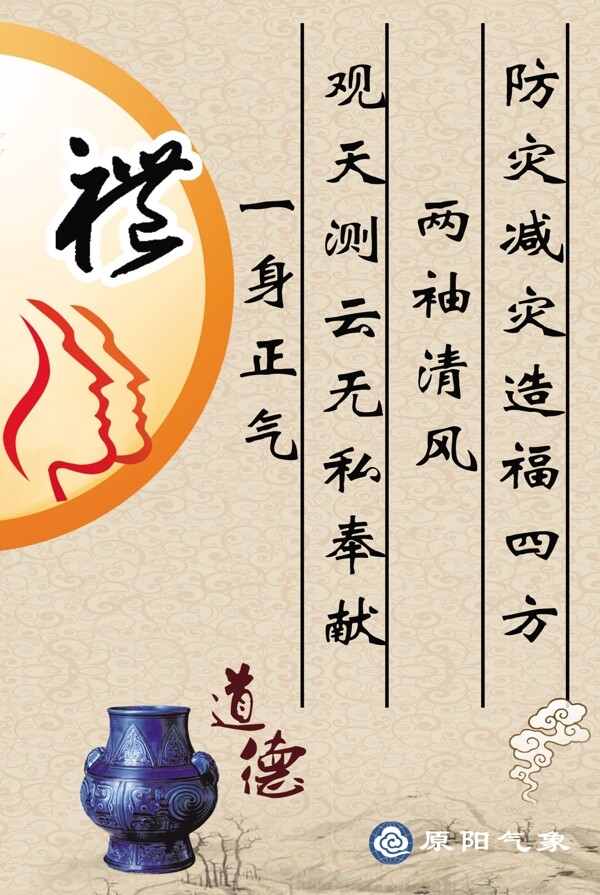 防灾减灾造福四方
两袖清风
观天测云无私奉献
一身正气
禮
道德
原阳气象